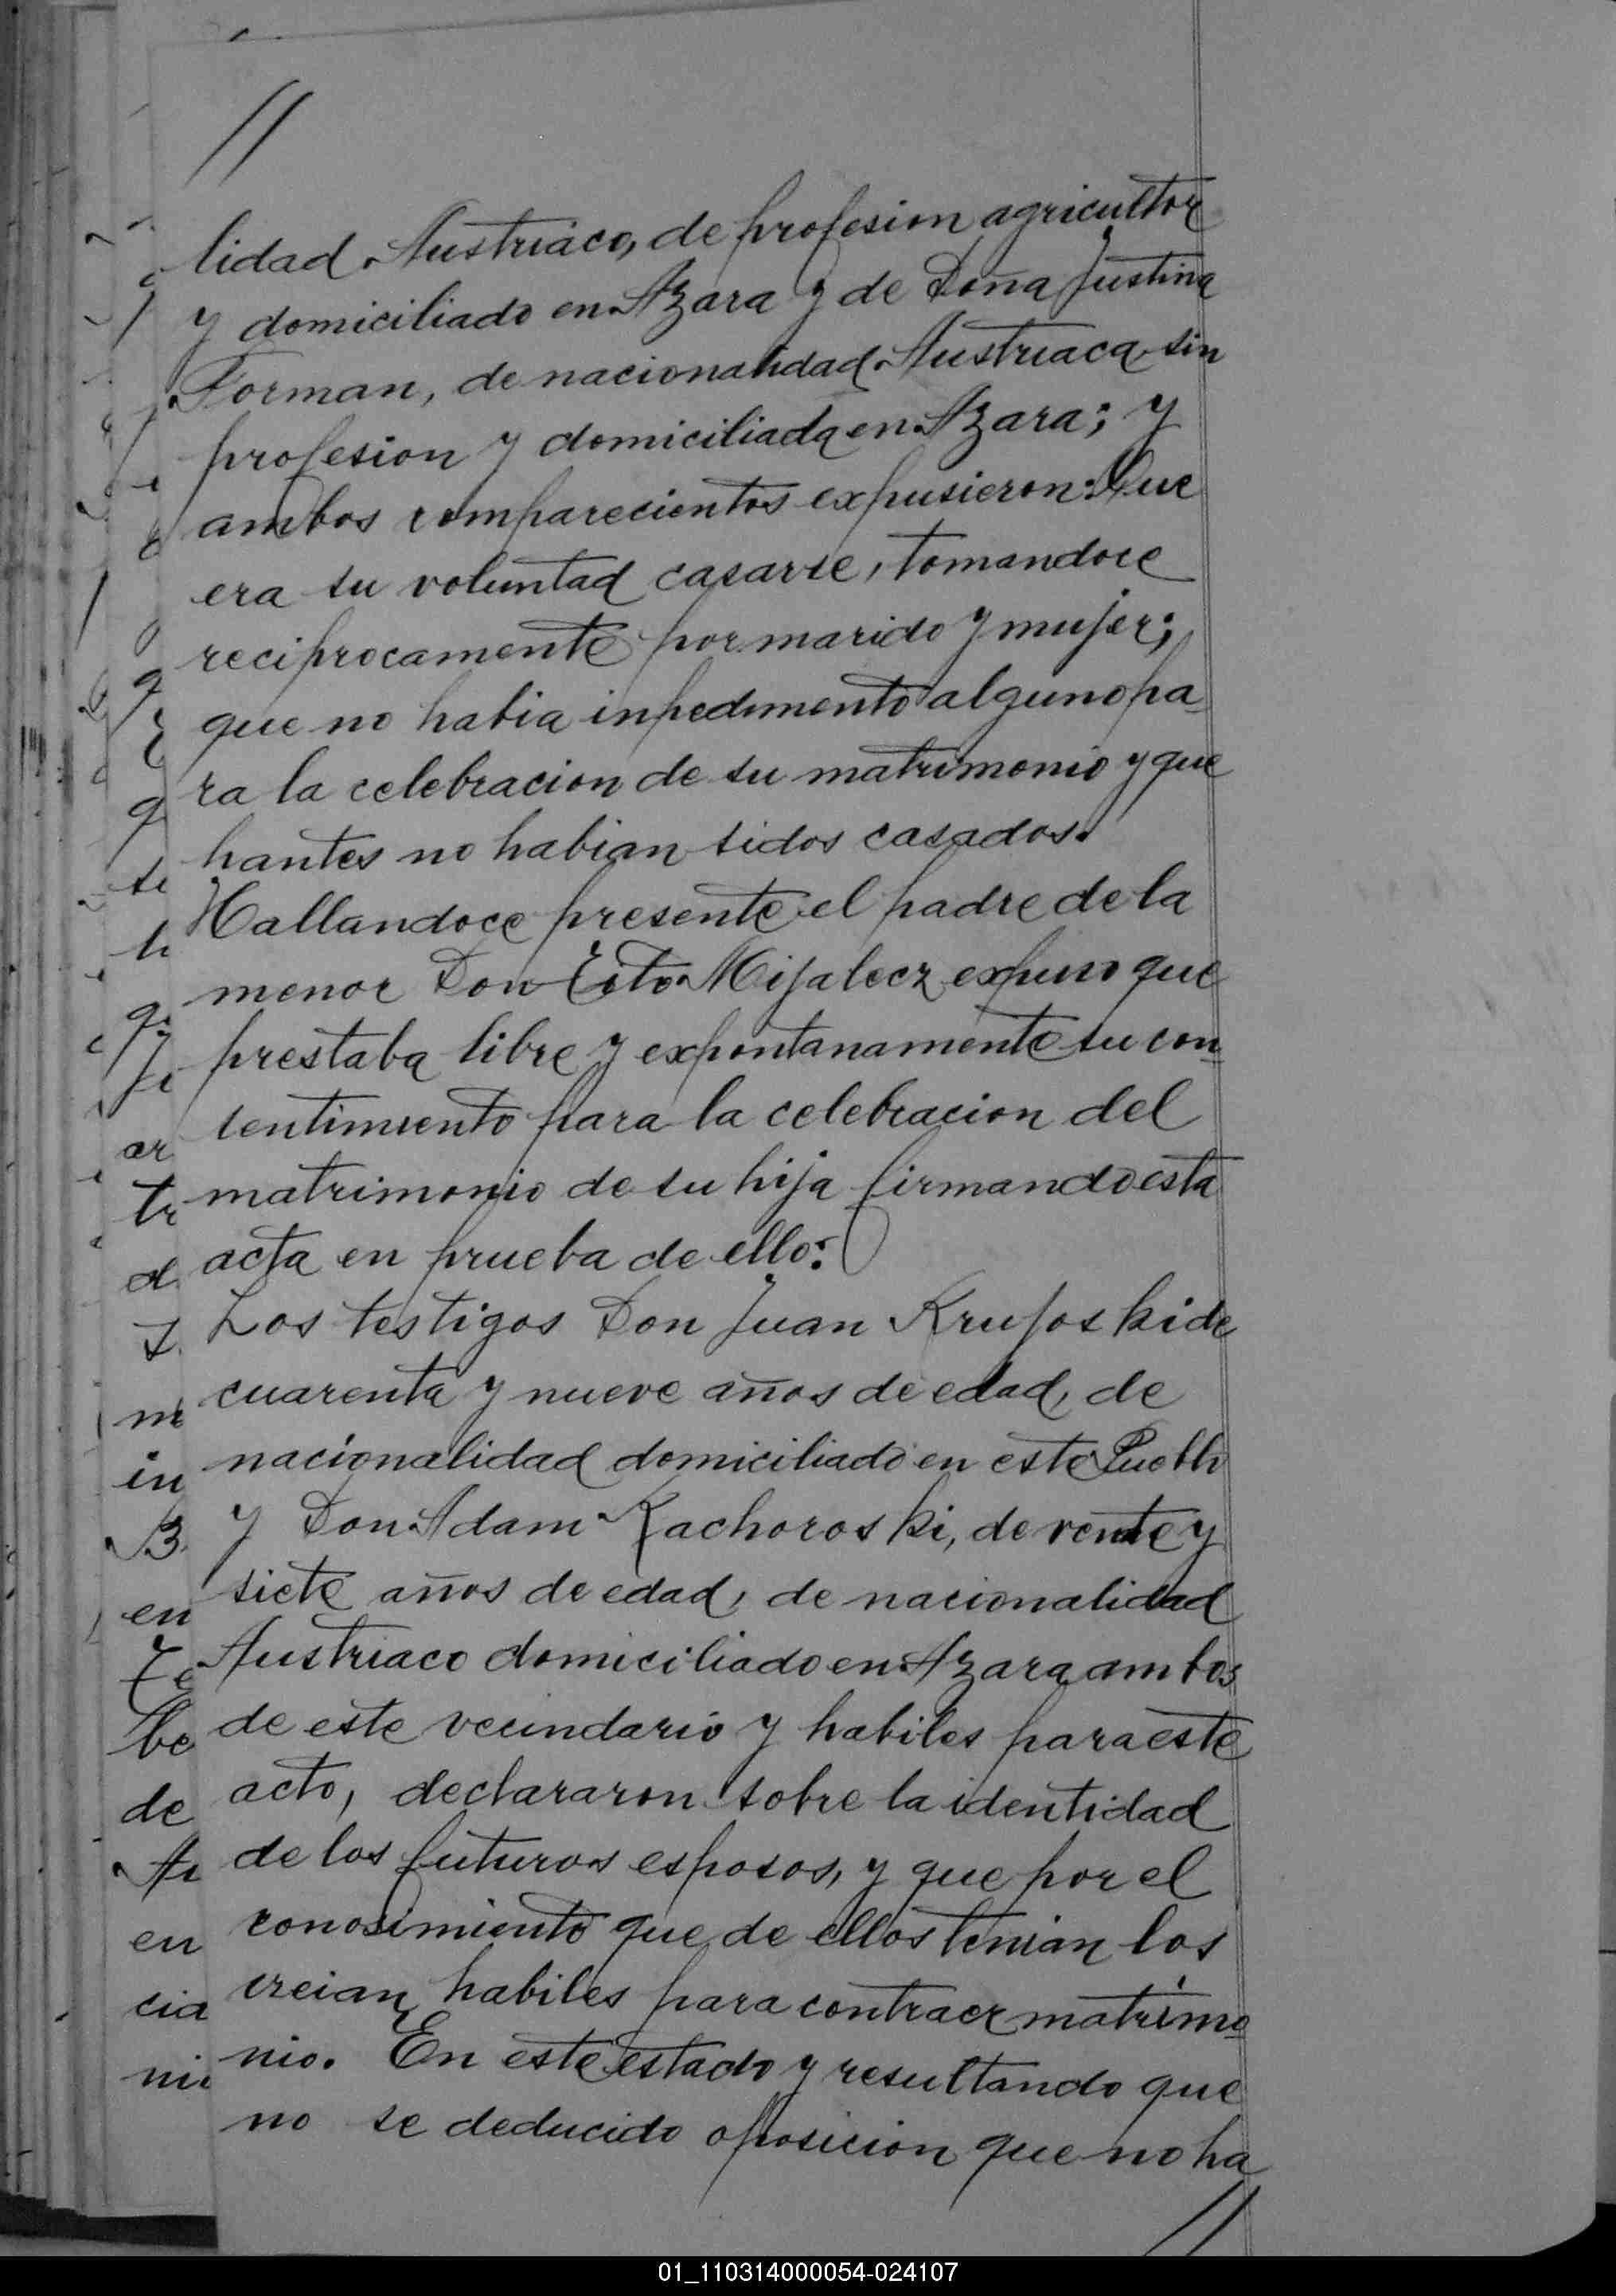 //
lidad Austriaco, de profesion agricultor
y domiciliado en Azara y de Doña Justina
Forman, de nacionalidad Austriaca sin
profesion y domiciliada en Azara; y
ambos comparecientos expusieron: Que
era su voluntad casarse, tomandoce
reciprocamente por marido y mujer;
que no habia inpedimento alguno pa
ra la celebracion de su matrimonio y que
hantes no habian sidos casados.
Hallandoce presente el padre de la
menor Don Esto Mijalecz expuso que
prestaba libre y expontanamente su con
sentimiento para la celebracion del
matrimonio de su hija firmando esta
acta en prueba de ello:
Los testigos Don Juan Krujoski de
cuarenta y nueve años de edad, de
nacionalidad domiciliado en este Pueblo
y Don Adam Kachoroski, de vente y
siete años de edad, de nacionalidad
Austriaco domiciliado en Azara ambos
de este vecindario y habiles para este
acto, declararon sobre la identidad
de los futuros esposos, y que por el
conosimiento que de ellos tenian los
creian habiles para contraer matrimo
nio. En este estado y resultando que
no se deducido oposicion que no ha
//
01_110314000054-024107